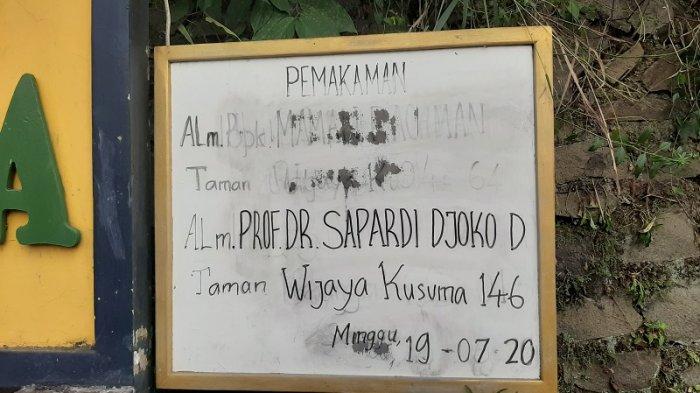 A
PEMAKAMAN
ALm. Bpk. MAMAN RACHMAN
Taman 64
ALm. PROF. DR. SAPARDI DJOKO D
Taman Wijaya Kusuma 146
Minggu, 19-07-20